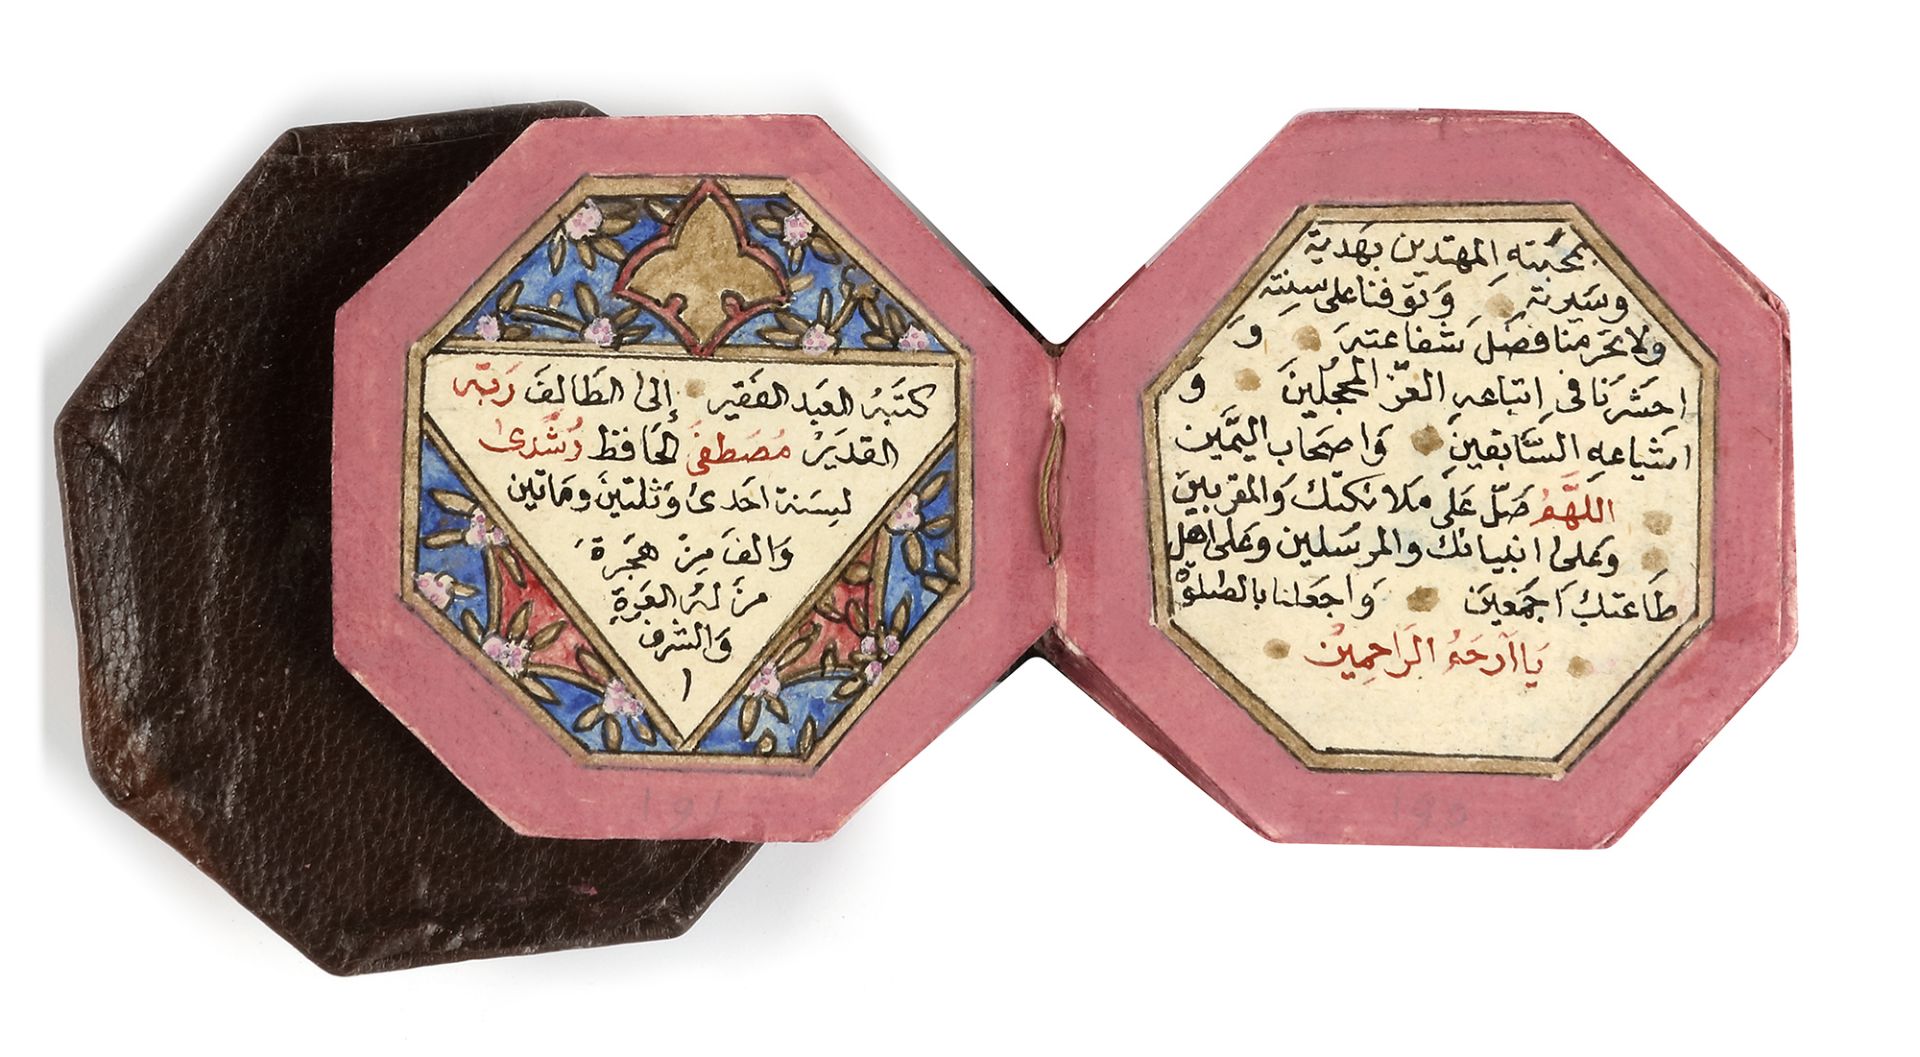 بمحبّته المهتدين بهدية
وسيرته وتوفنا على سنته
ولا تحرمنا فضل شفاعته و
احشرنا فى اتباعه الغرّ المحجلين و
اشياعه السّابقين واصحاب اليمين
اللهمّ صلّ على ملائكتك والمقربين
وعلى انبيائك والمرسلين وعلى اهل
طاعتك اجمعين واجعلنا بالصلوة
يا ارحم الراحمين
كتبه العبد الفقير إلى الطاف ربّه
القدير مصطفى الحافظ رشدى
لسنة احدى وثلثين ومأتين
والف من هجرة
من له العزة
والشرف
١